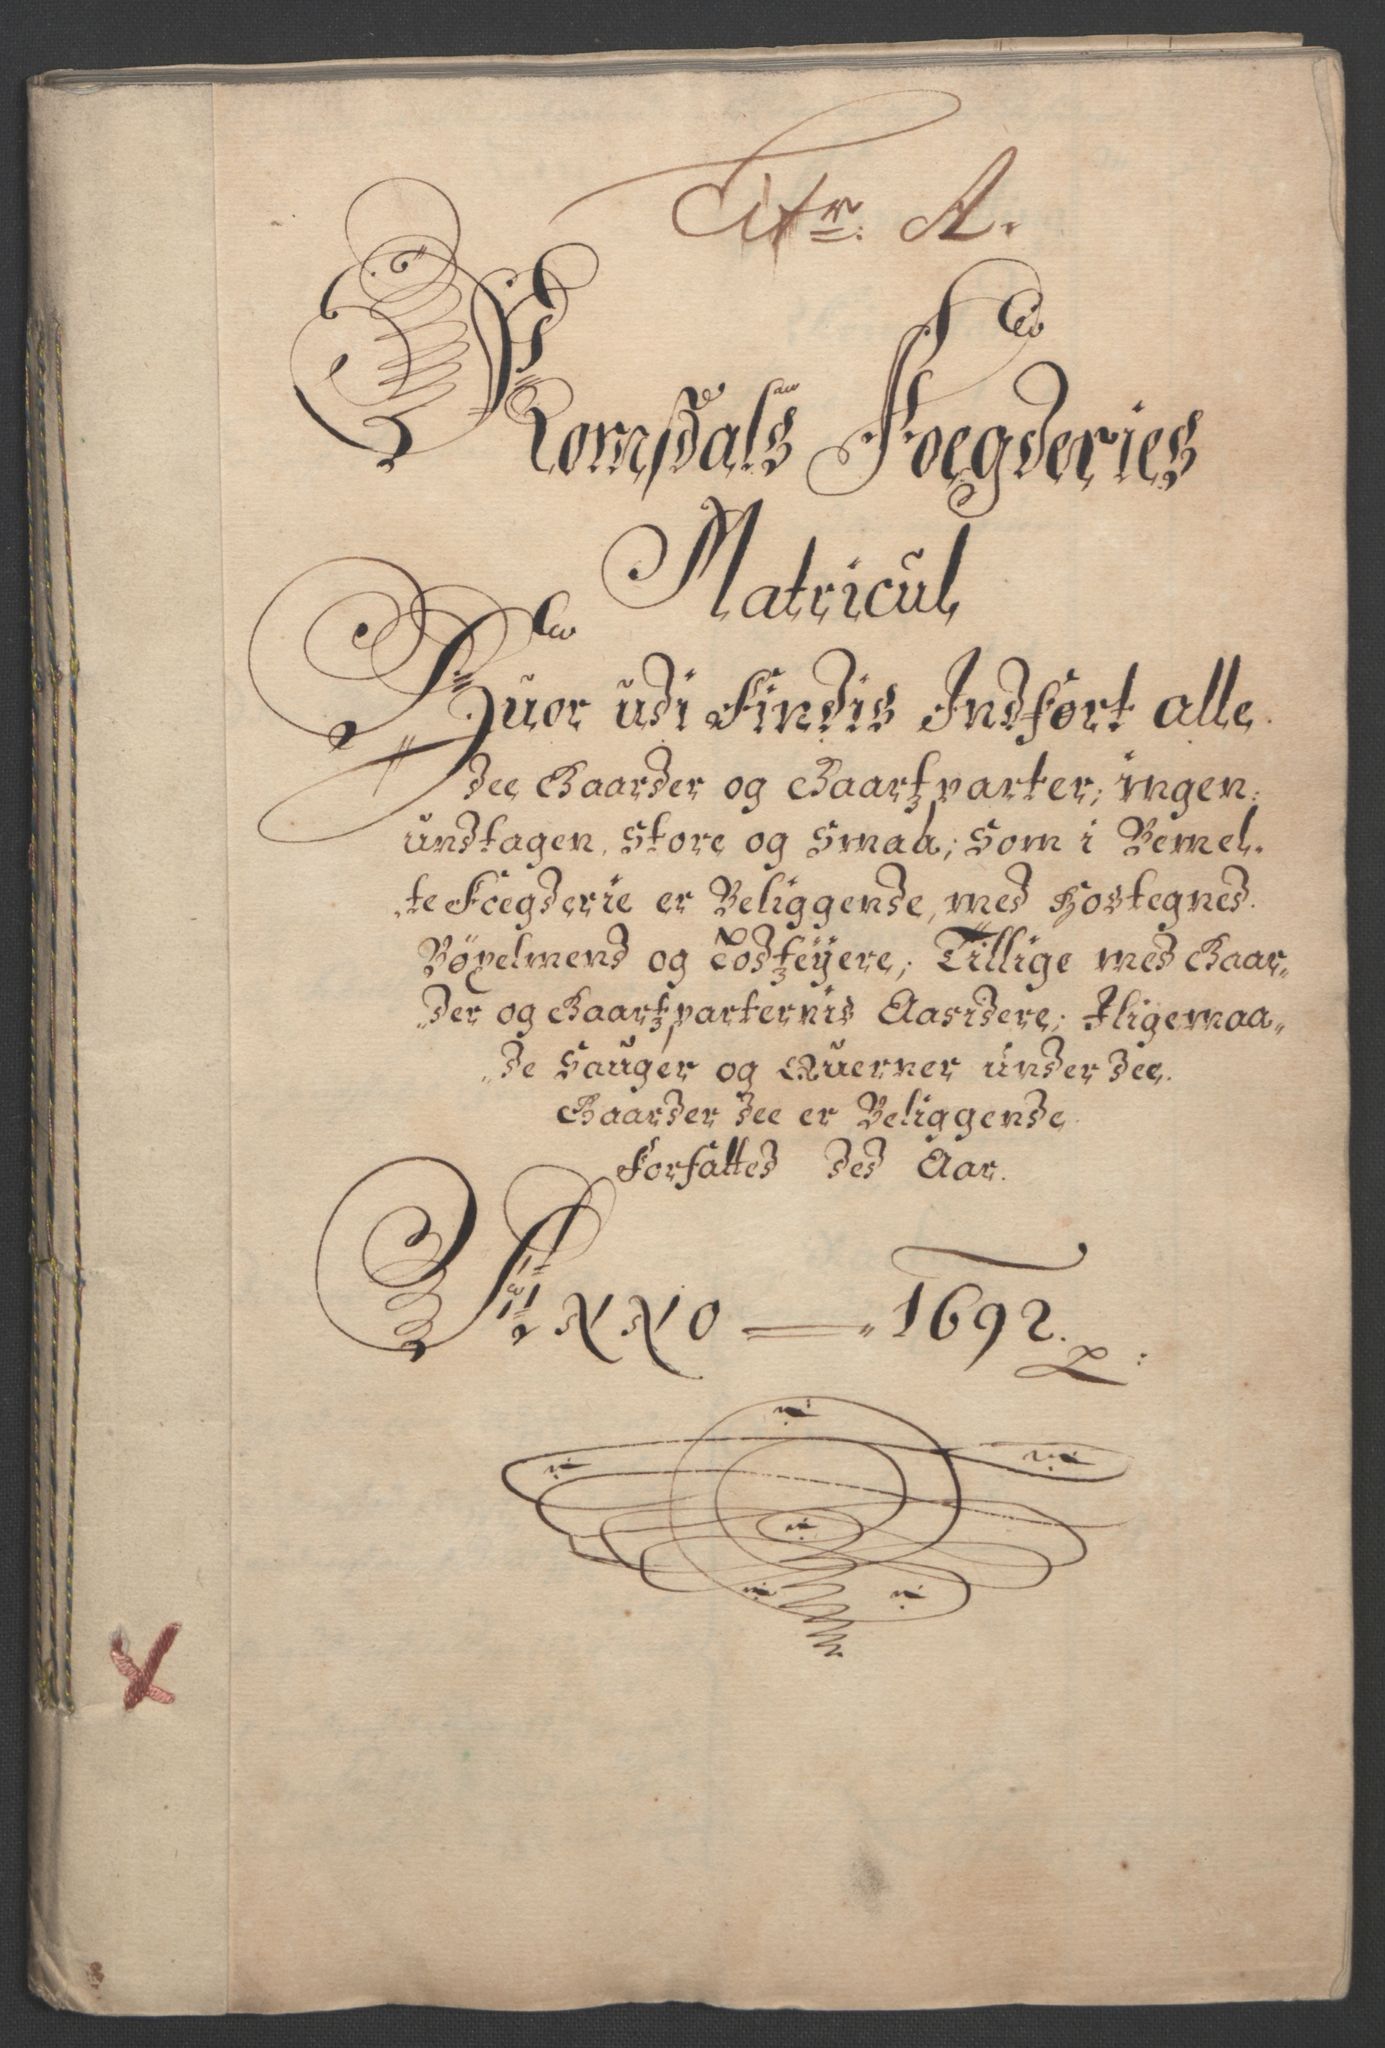 Litr. A.
Romsdals Foegderies
Matricul
Huor udi Findis Indført alle
dee Gaarder og Gaartzparter, ingen
undtagen, Store og Smaa; Som i Bemel-
te Foegderie er Beliggende, med Hostegned
Bøxelmend og Odtzeyere; Tillige med Gaar-
der og Gaartzparternis Aasidere; Iligemaa-
de Sauger og Querner under dee
Gaarder dee er Beliggende
Forfatted ded Aar.
Anno 1692.